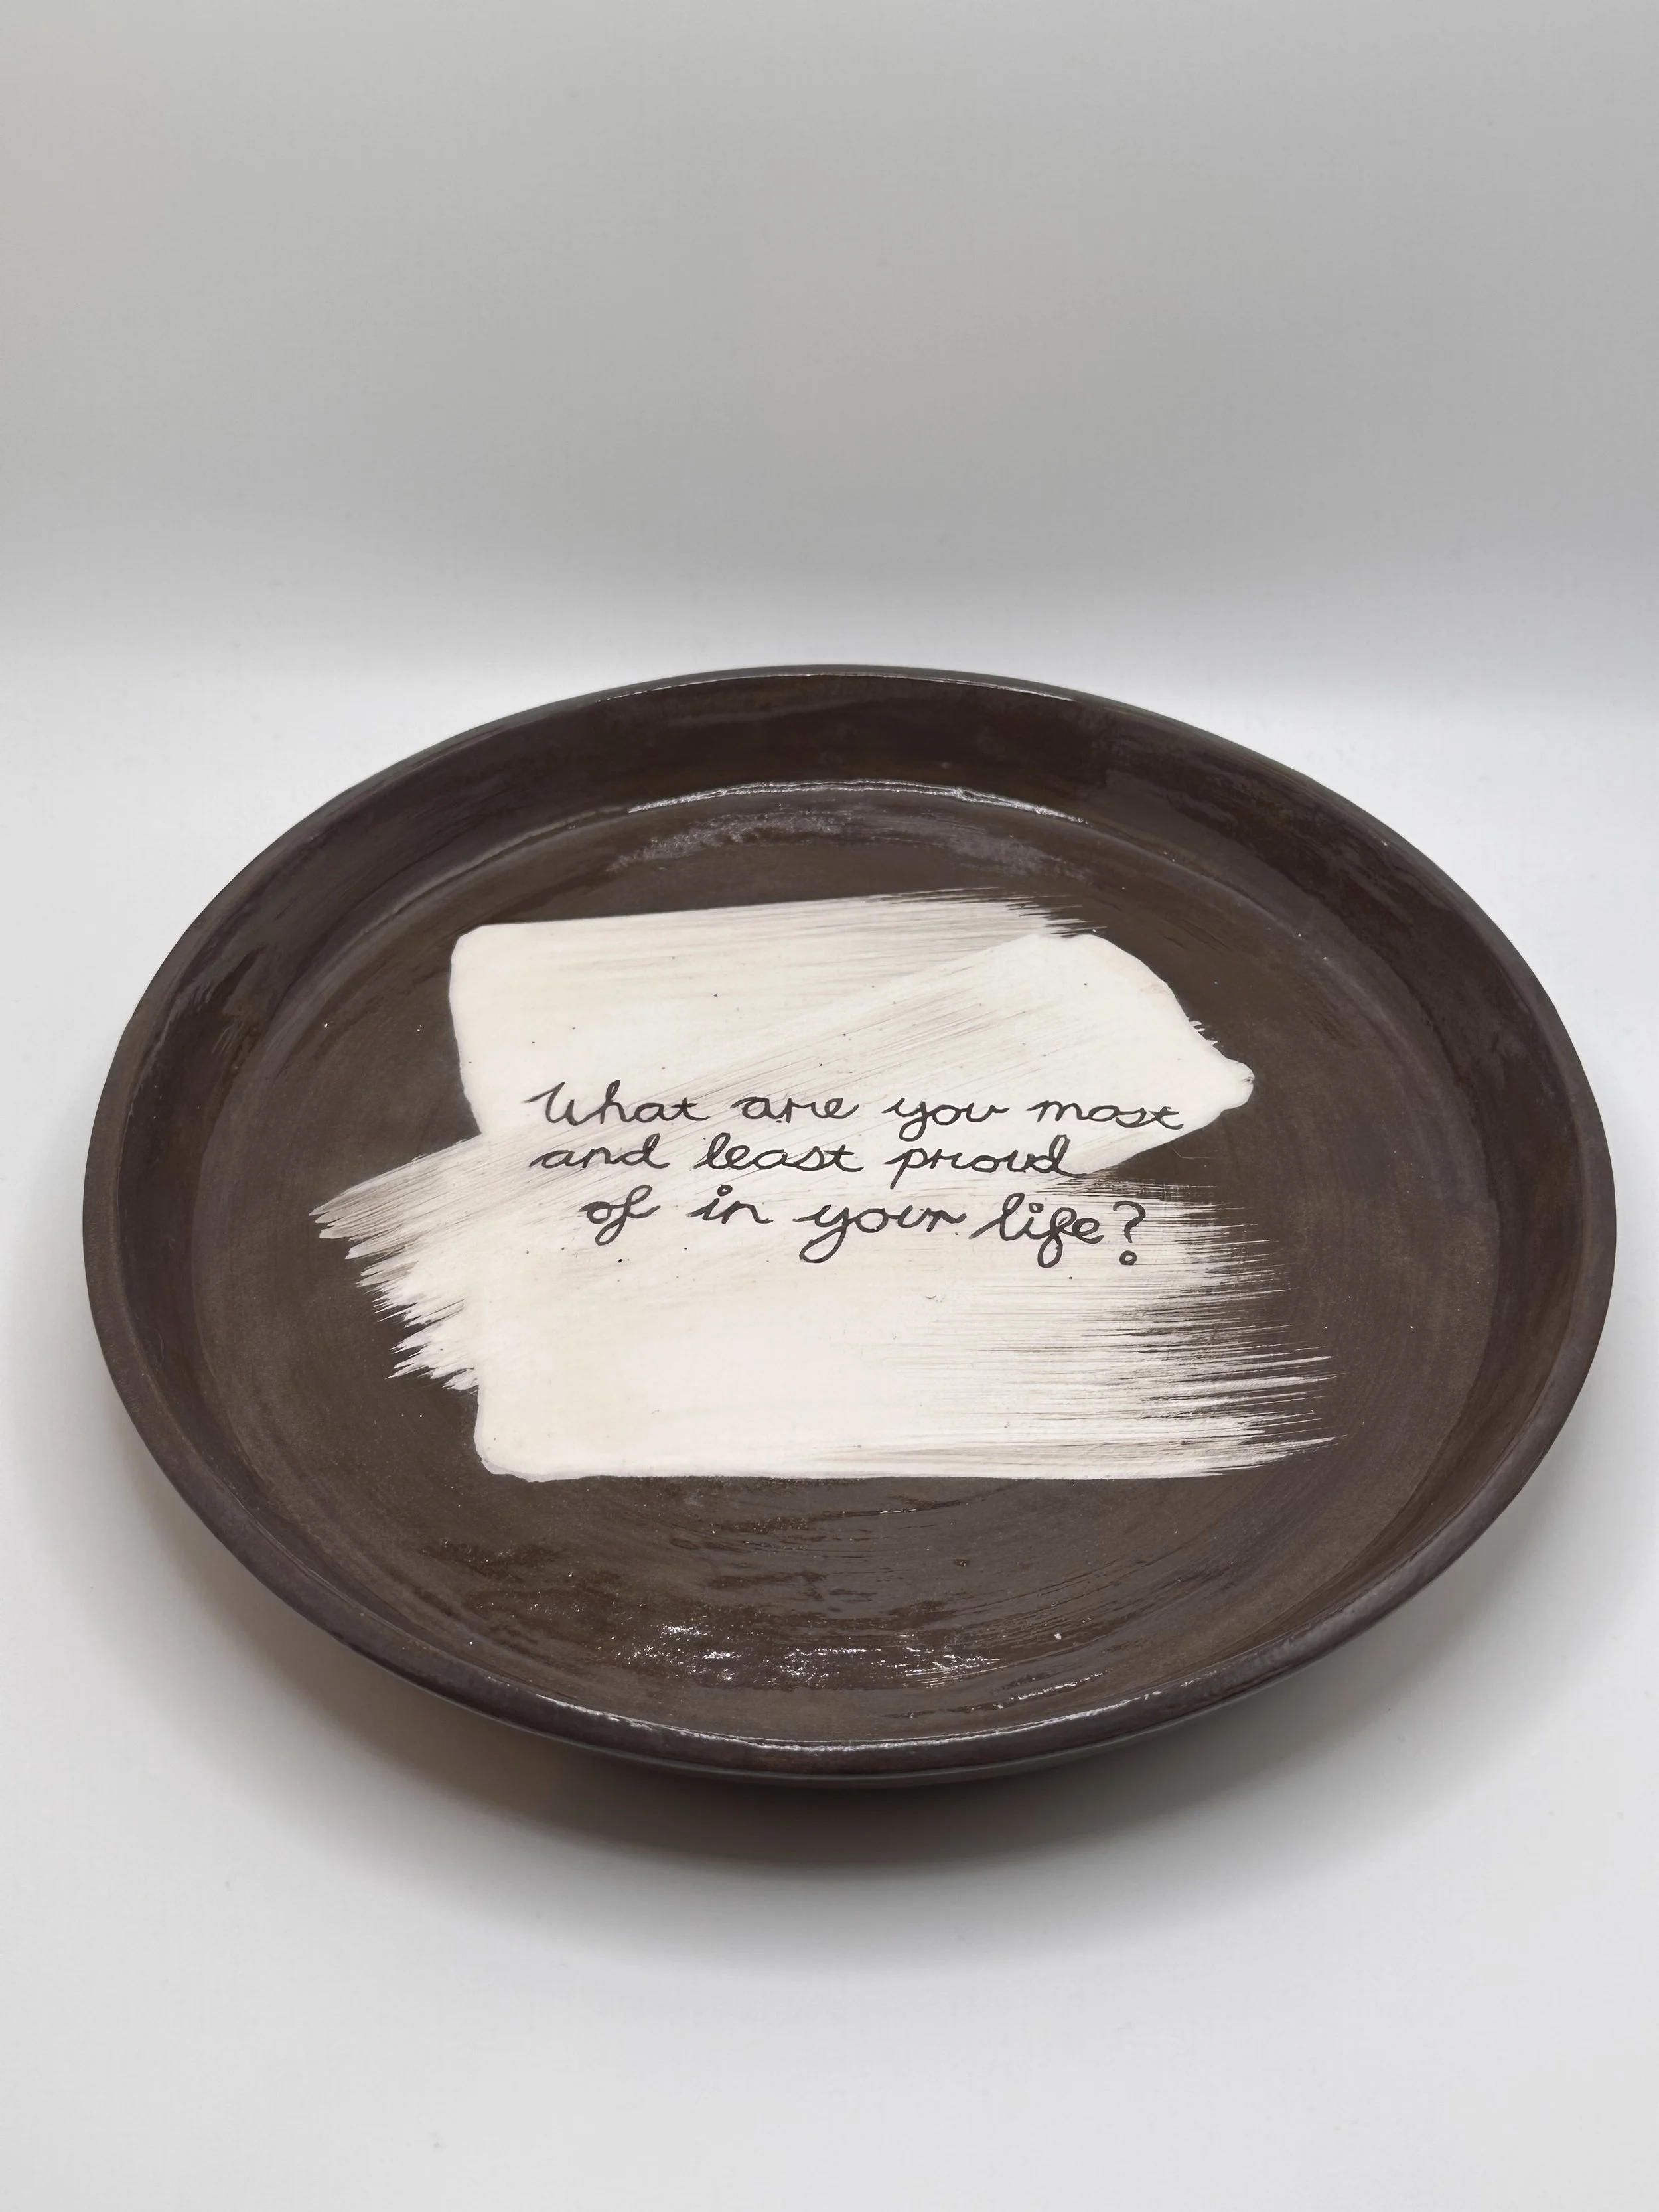 What are you most
and least proud
of in your life?